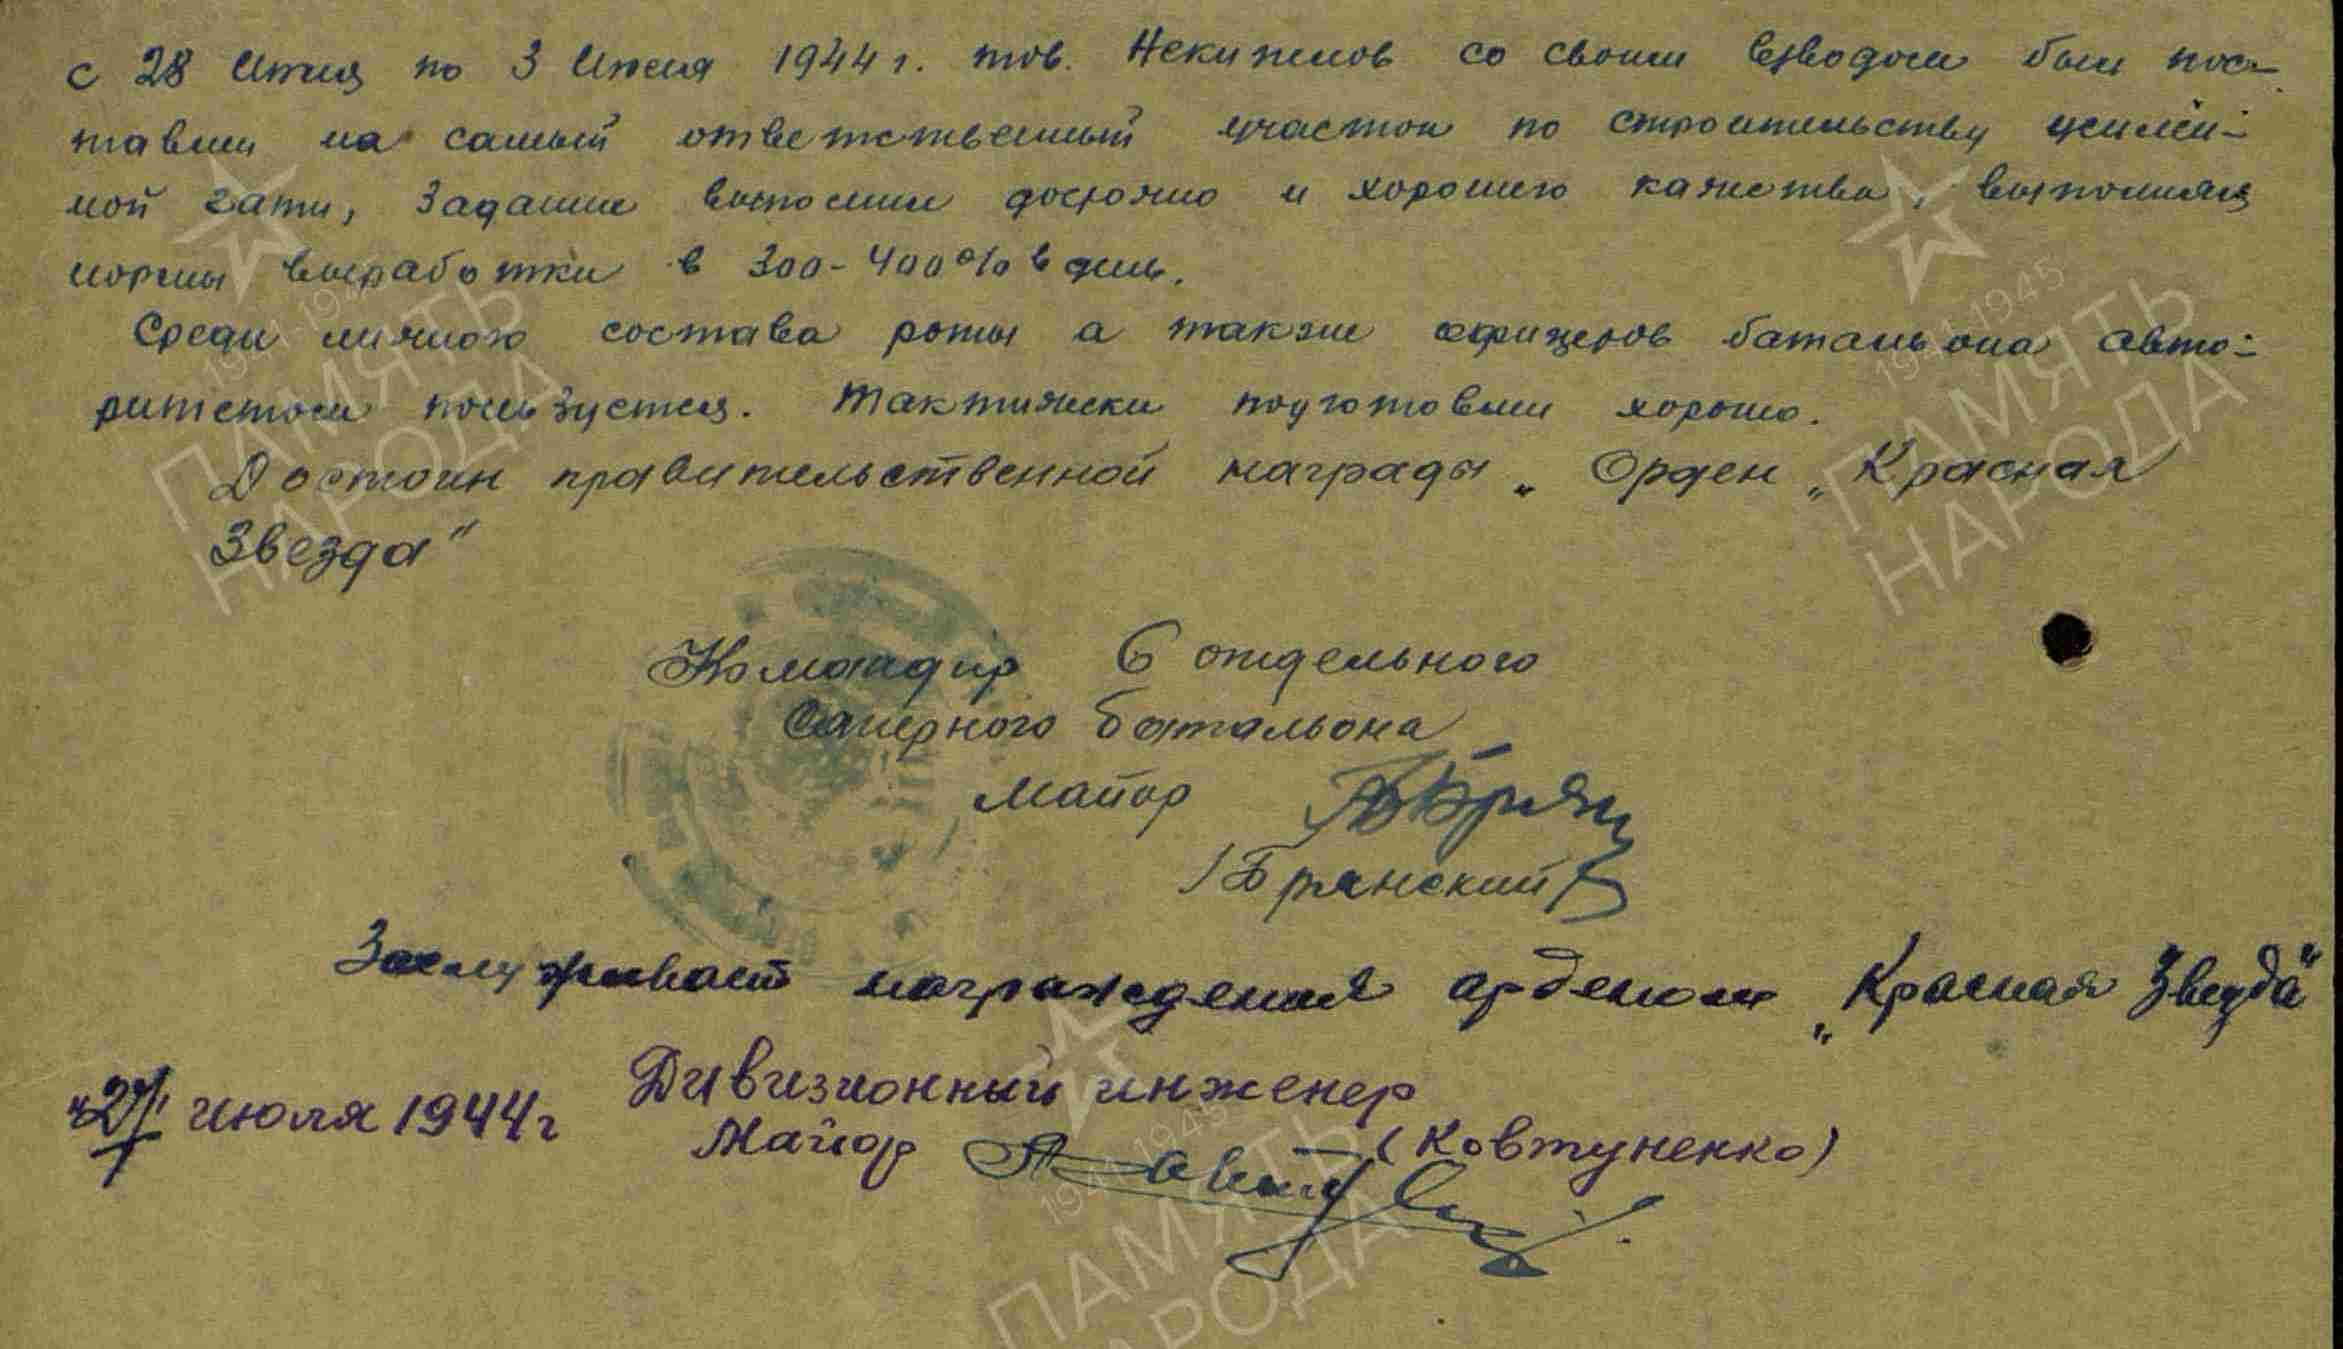 с 28 Июня по 3 Июля 1944 г. тов. Некипелов со своим взводом был пос-
тавлен на самый ответственный участок по строительству усилен-
ной гати, Задание выполнил досрочно и хорошего качества, выполняя
нормы выработки в 300-400% в день.
Среди личного состава роты а также офицеров батальона авто-
ритетом пользуется. Тактически подготовлен хорошо.
Достоин правительственной награды „ Орден „Красная
Звезда"
Командир 6 отдельного
Саперного батальона
Майор
/Брянский/
Заслуживает награждения орденом „Красная Звезда"
июля 1944 г
Дивизионный инженер
Майор (Ковтуненко)
1941-1945
ПАМЯТЬ
НАРОДА
1941-1945
ПАМЯТЬ
НАРОДА
1941-1945
ПАМЯТЬ
НАРОДА